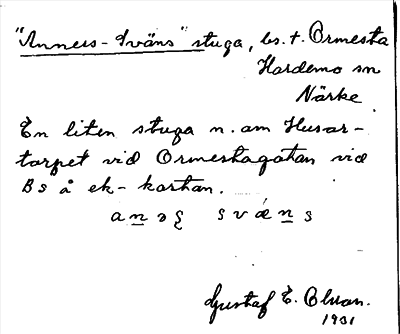 "Anners-Sväns" stuga, bs. t. Ormesta
Hardemo sn
Närke
En liten stuga n. om Husar-
torpet vid Ormestagatan vid
Bs å ek-kartan.
svǽn̲s
Gustaf E. Olsson.
1931